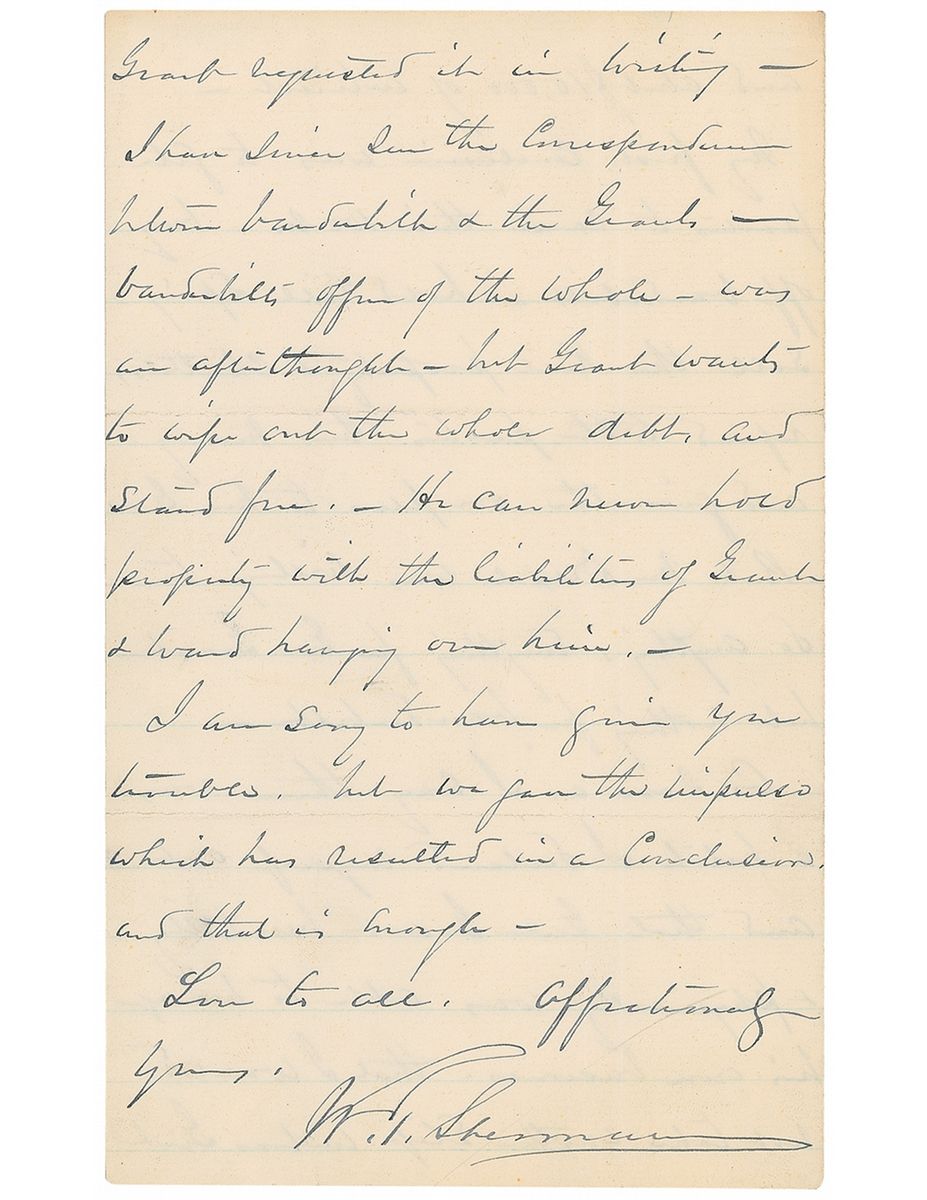 Grant requested it in writing —
I have since seen the Correspondence
between Vanderbilt & the Grants —
Vanderbilts offer of the whole – was
an afterthought – but Grant wants
to wipe out the whole debt, and
stand free. – He can never hold
property with the liabilities of Grant
& Ward hanging over him. –
I am sorry to have given you
trouble, but we gave the impulse
which has resulted in a Conclusion,
and that is enough –
Love to all. Affectionately
Yours,
W. T. Sherman